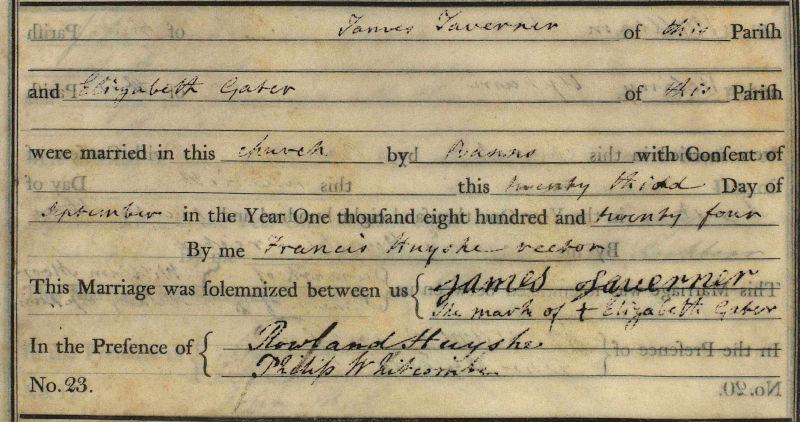 James Taverner of this Pariſh
and Elizabeth Gater of this Pariſh
were married in this church by Banns with Conſent of
this twenty third Day of
September in the Year One thouſand eight hundred and twenty four
By me Francis Huyshe rector
This Marriage was ſolemnized between us { James Taverner
The mark of + Elizabeth Gater
In the Preſence of { Rowland Huyshe
Philip Whitcombe
No. 23.